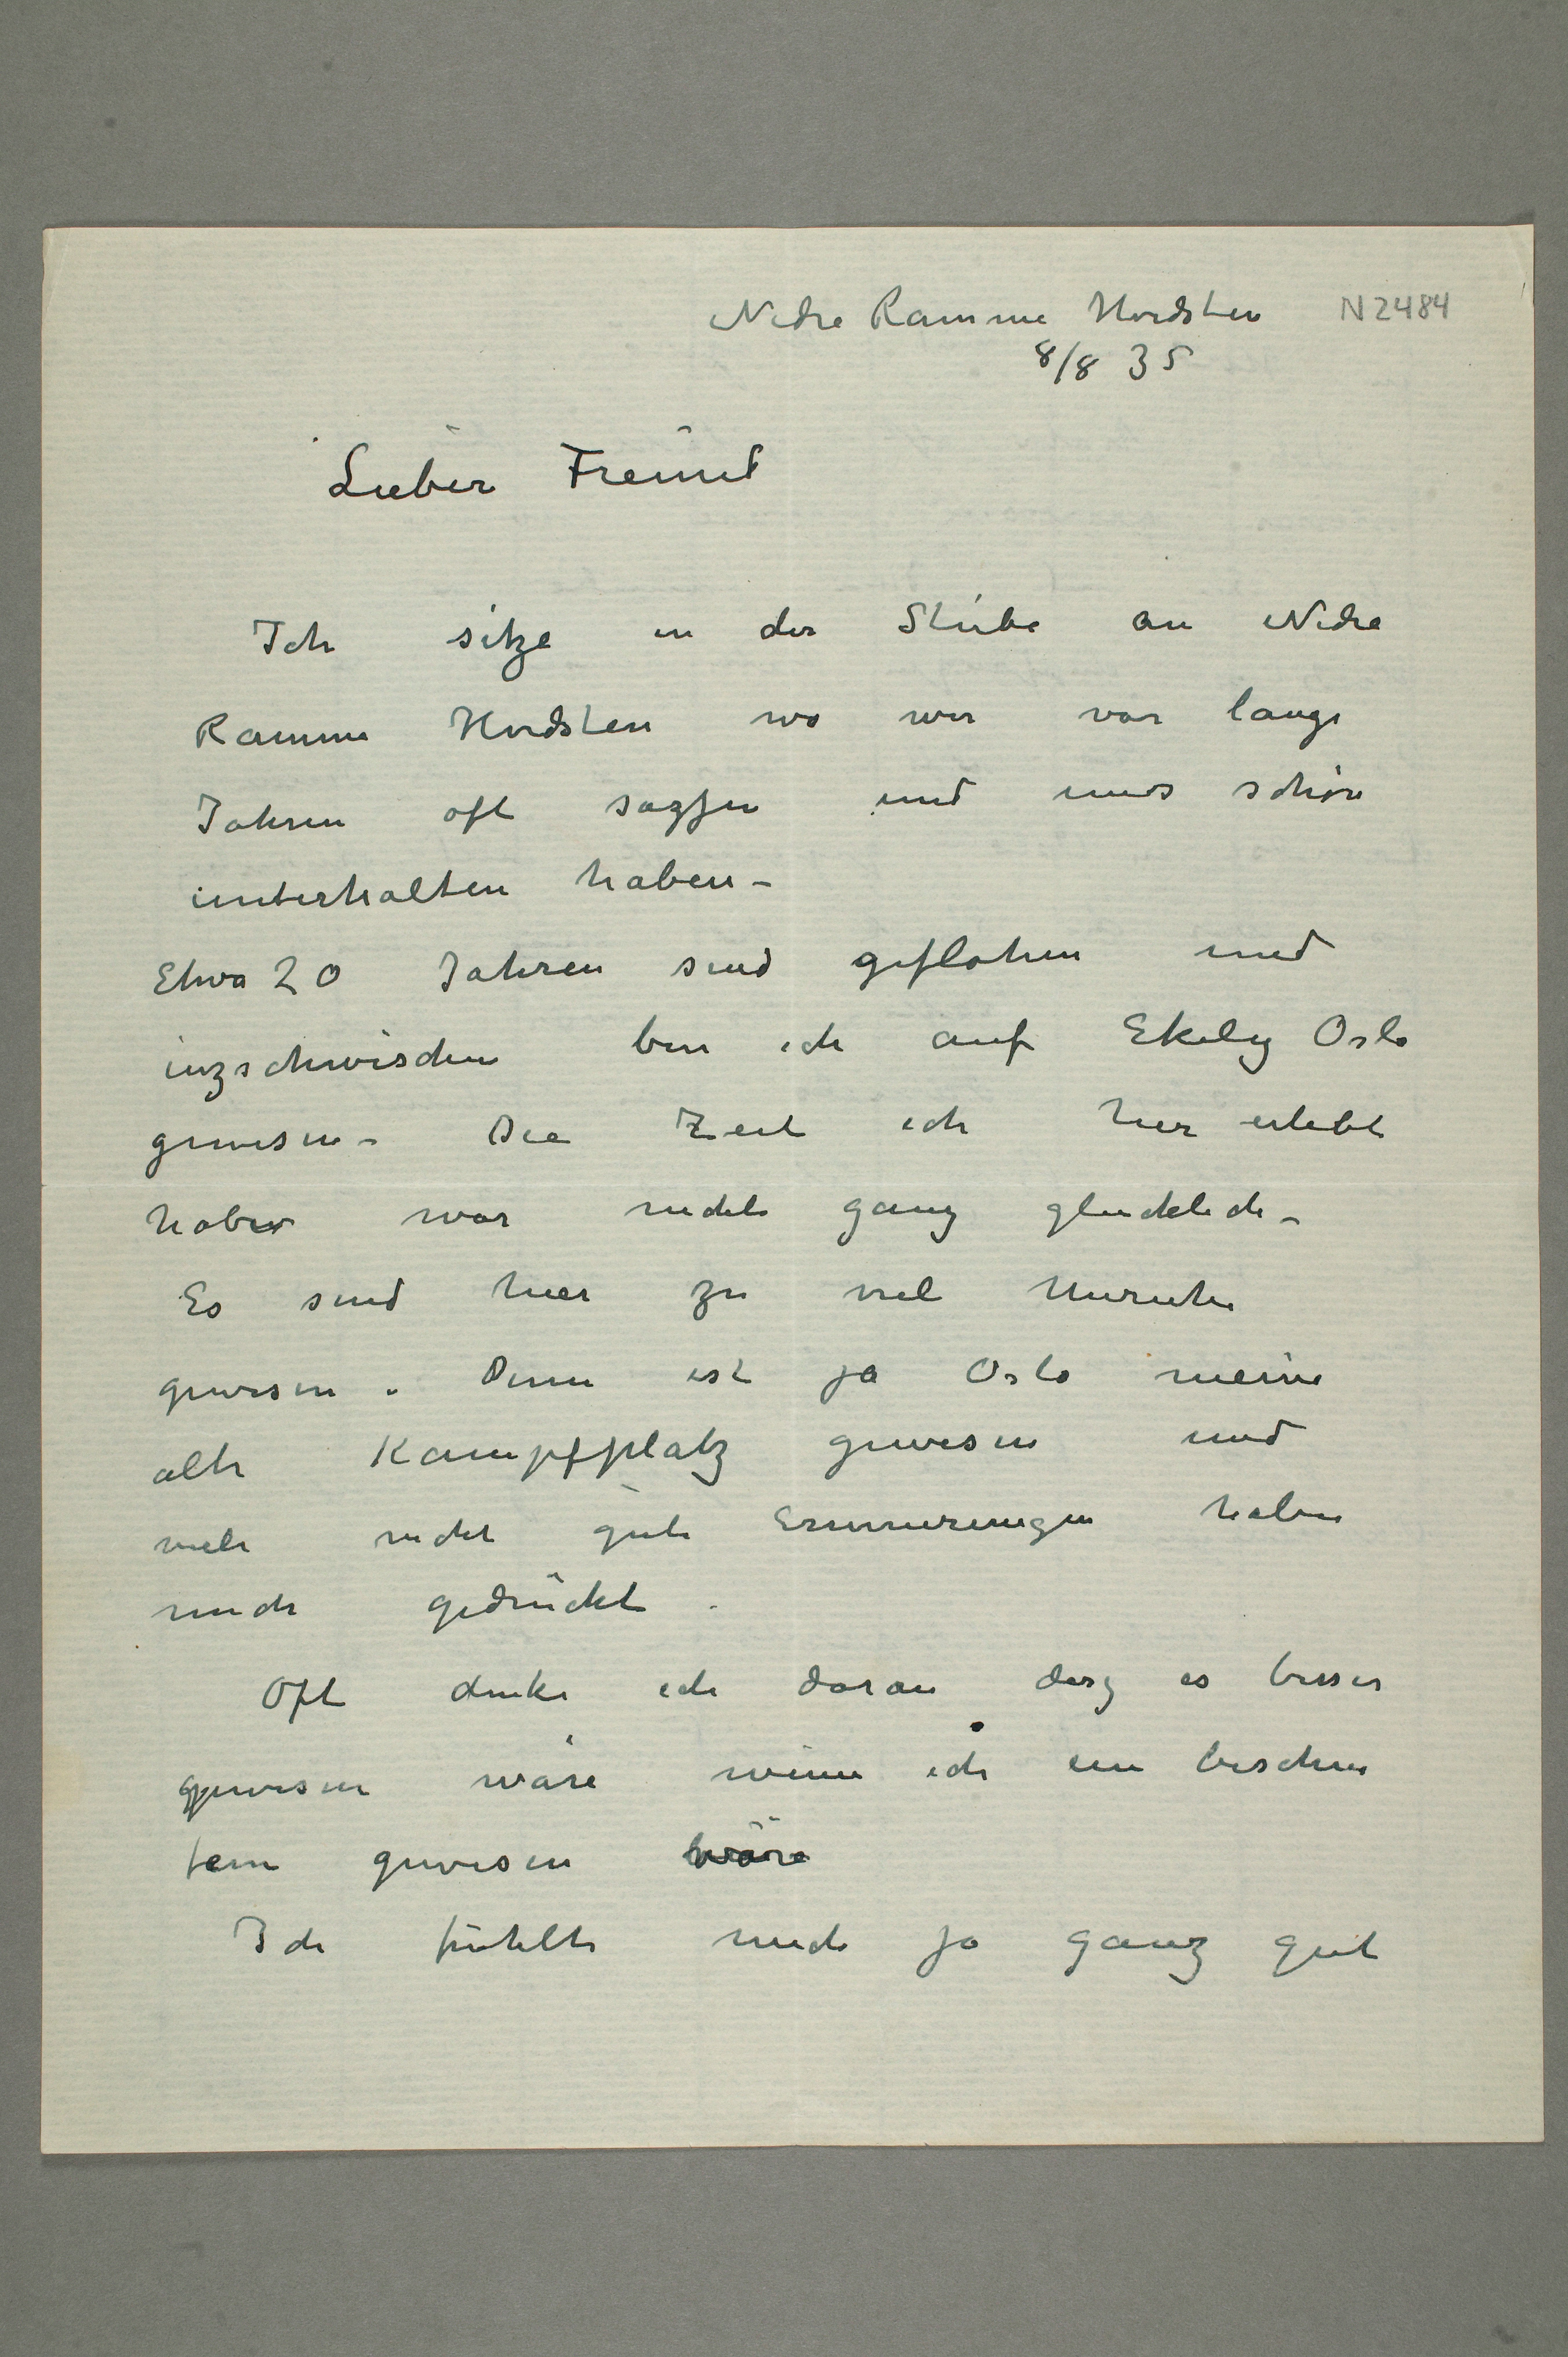 Nedre Ramme Hvidsten N 2484
8/8 35
Lieber Freund
Ich sitze in der Stube an Nedre
Ramme Hvidsten wo wir vor lange
Jahren oft sazsen und uns schön
unterhalten haben –
Etwa 20 Jahren sind geflohen und
inzschwischen bin ich auf Ekely Oslo
gewesen – Die Zeit ich hier erlebt
habe war nicht ganz glücklich –
Es sind hier zu viel Unruhe
gewesen. Denn ist ja Oslo meine
alte Kampfplatz gewesen und
viele nicht gute Erinnerungen haben
mich gedrückt.
Oft denke ich daran dasz es besser
gewesen wäre wenn ich ein bischen
fern gewesen wäre
Ich fühlte mich ja ganz gut